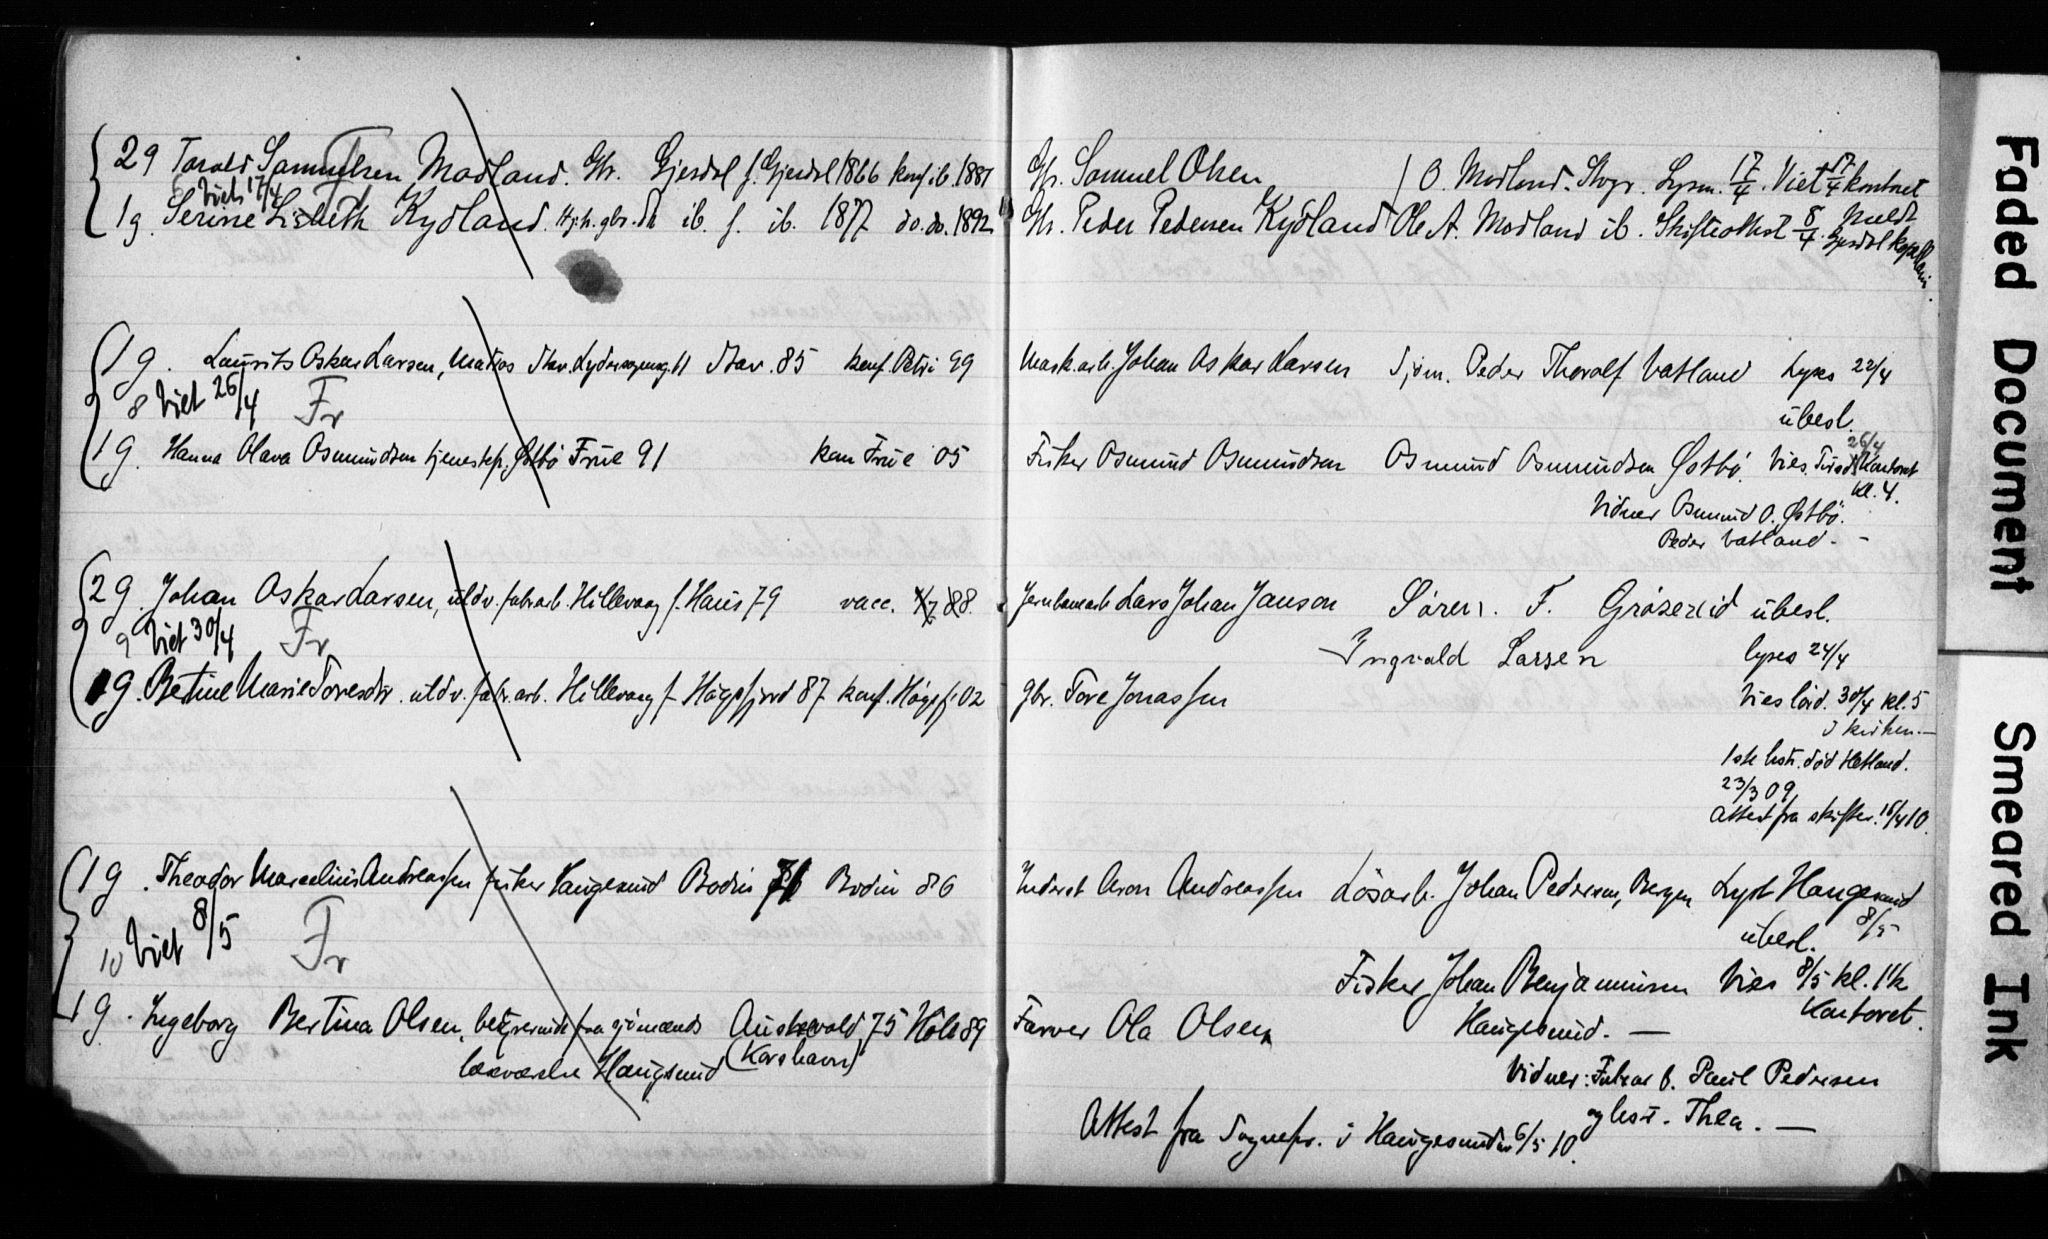 29 Torald Samuelsen Modland. Gbr. Gjesdal f. Gjesdal 1866 konf ib. 1881
Gbr. Samuel Olsen / O. Modland. Lysn. 17/4. Viet 17/4 kontoret
6 Viet 17/4
1g. Serine Lisbeth Kydland. Hjh. gbr. dt ib. f. ib. 1877 do. do. 1892
Gbr. Peder Pedersen Kydland Ole A. Modland ib. Skifteattest 8/4. Meldt Gjesdal kapellani.
1g. Laurits Oskar Larsen, Matros Stav. Stav. 85 konf. Petri 99
Mask.arb. Johan Oskar Larsen Sjøm. Peder Thoralf Vatland Lyses 22/4
8 Viet 26/4 Fr
übesl.
1g. Hanna Olava Osmundsen tjenestep. Østbö Frue 91 kon Frue 05
Fisker Osmund Osmundsen Osmund Osmundsen Østbö. Vies Tirsd. 26/4 Kontoret
kl. 4.
Vidner Osmund O. Østbö.
Peder Vatland. -
2g. Johan Oskar Larsen, uldv. fabr.arb. Hillevaag f. Haus 79 vacc. 88.
Jernbanearb Lars Johan Janson Sören. F. Grözereid übesl.
9 Viet 30/4 Fr
Ingvald Larsen lyses 24/4
1g. Bertine Marie Toresdtr. uldv. fabr. arb. Hillevaag f. Høgsfjord 87 konf. Høgsfj 02
gbr. Tore Jonassen Vies lörd. 30/4 kl. 5
i kirken.—
1ste hstr. död Hetland.
23/3 09
Attest fra skifter. 16/4 10.
1g. Theodor Marcelius Andreassen fisker Haugesund Bodin 71 Bodin 86
Inderst Aron Andreassen Lösarb. Johan Pedersen, Bergen Lyst Haugesund
8/5
10 Viet 8/5 Fr
übesl.
Fisker Johan Benjaminsen Vies 8/5 kl. 1½
1g. Ingeborg Bertina Olsen, fra Austevold 75 Höle 89
Farver Ola Olsen Haugesund. — Kontoret.
Haugsund (Korshavn)
Vidner: Fabrarb. Paul Pedersen
og hstr. Thea. —
Attest fra Sognepr. i Haugesund 6/5 10.
Faded Document
Smeared Ink